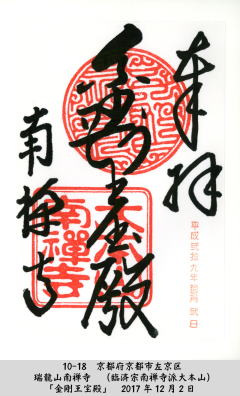 奉拝
金剛王宝殿
南禅寺
南禅寺
平成弐拾九年拾弐月弐日
10-18 京都府京都市左京区
瑞龍山南禅寺 (臨済宗南禅寺派大本山)
「金剛王宝殿」 2017年12月2日